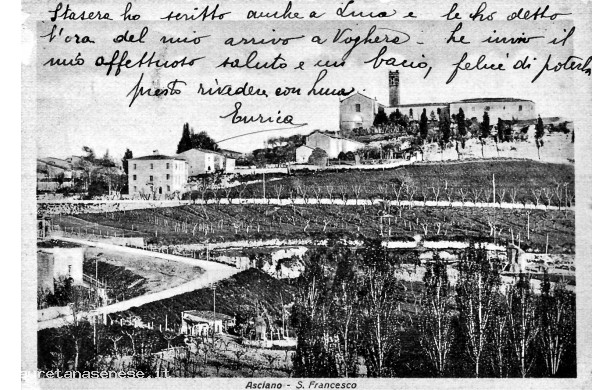 Stasera ho scritto anche a Luca e le ho detto
l'ora del mio arrivo a Voghera - le invio il
mio affettuoso saluto e un bacio, felice di poterla
presto rivedere con Luca.
Enrica
Asciano - S. Francesco
auretanasenese.it